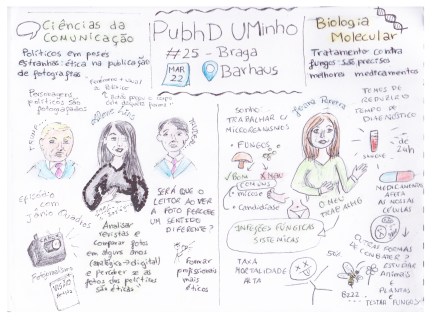 Ciências da
Comunicação
Políticos em poses
estranhas: ética na publicação
de fotografias
Personagens
políticos são
fotografados
Episódio
com
Jânio Quadros
Fotojornalismo
Analisar
revistas e
comparar fotos
em alguns anos
(analógico → digital)
e perceber se as
fotos dos políticos
são éticas
Será que o
leitor ao ver
a foto percebe
um sentido
diferente?
Formar
profissionais
mais
éticos
PubhD UMinho
#25 - Braga
MAR
22
Barhaus
Biologia
Molecular
Tratamento contra
fungos: são precisos
melhores medicamentos
Sonho:
trabalhar c/
microorganismos
• Fungos
Bom
Mau
Comuns
• Micose
• Candidíase
Joana Pereira
O meu
trabalho
Infeções fúngicas
sistémicas
Taxa
mortalidade
alta
50%
Temos de
reduzir o
tempo de
diagnóstico
Sangue
de 24h
Medicamento
afeta
as nossas
células
Outras formas
de combater?
Estudar
animais
e
plantas
e
testar fungos
Bzzz...